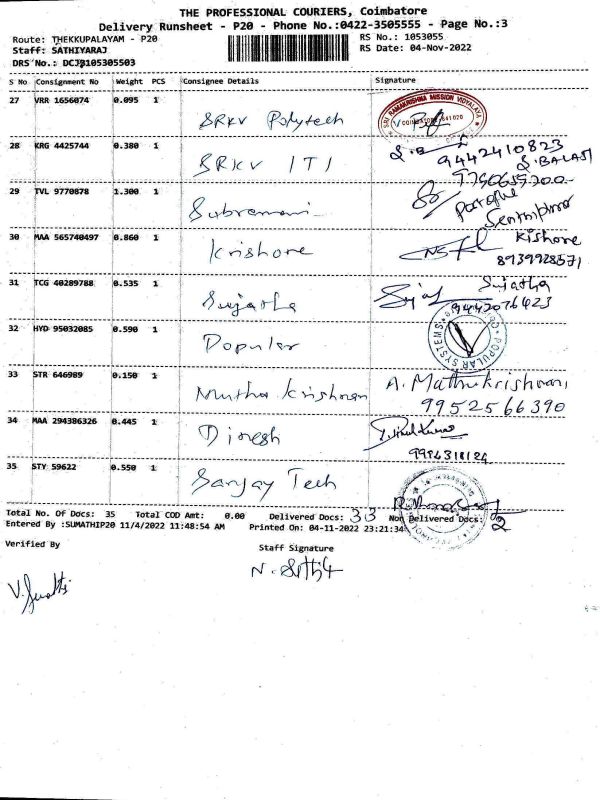 THE PROFESSIONAL COURIERS, Coimbatore
Delivery Runsheet - P20 - Phone No.:0422-3505555 - Page No.:3
Route: THEKKUPALAYAM - P20
RS No.: 1053055
Staff: SATHIYARAJ
RS Date: 04-Nov-2022
DRS No.: DCJB105305503
S No Consignment No Weight PCS Consignee Details Signature
27 VRR 1656074 0.095 1
SRKV Polytech
SRI RAMAKRISHNA MISSION VIDYALAYA
COIMBATORE 641020
28 KRG 4425744 0.380 1
SRKV ITI
9442410823
S.BALAJI
29 TVL 9770878 1.300 1
Subramani
30 MAA 565740497 0.860 1
Krishore
Kishore
8939928571
31 TCG 40289788 0.535 1
Sujatha
Sujatha
9442076423
32 HYD 95032085 0.590 1
Popular
POPULAR SYSTEMS
33 STR 646989 0.150 1
Muthu Krishnan
A. Muthukrishnan
9952566390
34 MAA 294386326 0.445 1
Dinesh
9994318124
35 STY 59622 0.550 1
Sanjay Tech
Total No. Of Docs: 35 Total COD Amt: 0.00 Delivered Docs: 33 Non Delivered Docs: 2
Entered By :SUMATHIP20 11/4/2022 11:48:54 AM Printed On: 04-11-2022 23:21:34
Verified By
Staff Signature